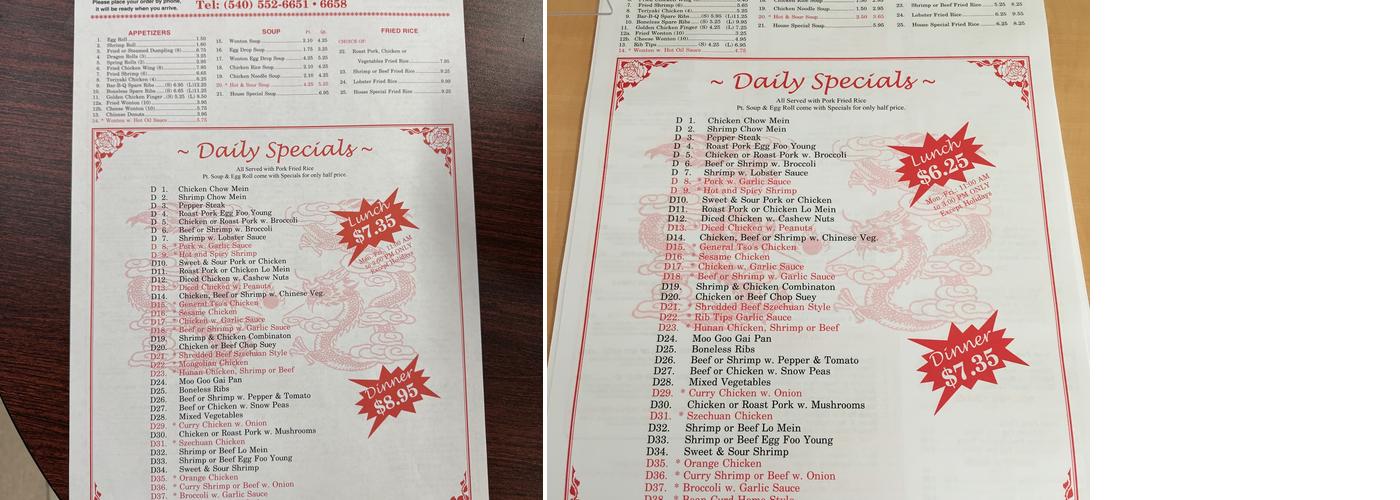 Please place your order by phone,
it will be ready when you arrive.
Tel: (540) 552-6651 • 6658
APPETIZERS
1. Egg Roll 1.50
2. Shrimp Roll 1.60
3. Fried or Steamed Dumpling (8) 6.75
4. Dragon Rolls (3)
5. Spring Rolls (2)
6. Fried Chicken Wing (8)
7. Fried Shrimp (6) 6.65
8. Teriyaki Chicken (4) 6.25
9. Bar-B-Q Spare Ribs (S) 6.95 (L)13.25
10. Boneless Spare Ribs (S) 6.65 (L)
11. Golden Chicken Finger (S) 5.25 (L) 9.50
12a. Fried Wonton (10) 3.95
12b. Cheese Wonton (10) 5.75
13. Chinese Donuts 3.95
14. * Wonton w. Hot Oil Sauce 5.75
SOUP
Pt. Qt.
15. Wonton Soup 2.10 4.25
16. Egg Drop Soup 1.75 3.25
17. Wonton Egg Drop Soup 4.25 5.25
18. Chicken Rice Soup 2.10 4.25
19. Chicken Noodle Soup 2.10 4.25
20. * Hot & Sour Soup 4.25 5.25
21. House Special Soup 6.95
FRIED RICE
CHOICE OF:
22. Roast Pork, Chicken or
Vegetables Fried Rice 7.95
23. Shrimp or Beef Fried Rice 9.25
24. Lobster Fried Rice 9.95
25. House Special Fried Rice 9.25
~ Daily Specials ~
All Served with Pork Fried Rice
Pt. Soup & Egg Roll come with Specials for only half price.
D 1. Chicken Chow Mein
D 2. Shrimp Chow Mein
D 3. Pepper Steak
D 4. Roast Pork Egg Foo Young
D 5. Chicken or Roast Pork w. Broccoli
D 6. Beef or Shrimp w. Broccoli
D 7. Shrimp w. Lobster Sauce
D 8. * Pork w. Garlic Sauce
D 9. * Hot and Spicy Shrimp
D10. Sweet & Sour Pork or Chicken
D11. Roast Pork or Chicken Lo Mein
D12. Diced Chicken w. Cashew Nuts
D13. * Diced Chicken w. Peanuts
D14. Chicken, Beef or Shrimp w. Chinese Veg.
D15. * General Tso's Chicken
D16. * Sesame Chicken
D17. * Chicken w. Garlic Sauce
D18. * Beef or Shrimp w. Garlic Sauce
D19. Shrimp & Chicken Combinaton
D20. Chicken or Beef Chop Suey
D21. * Shredded Beef Szechuan Style
D22. * Mongolian Chicken
D23. * Hunan Chicken, Shrimp or Beef
D24. Moo Goo Gai Pan
D25. Boneless Ribs
D26. Beef or Shrimp w. Pepper & Tomato
D27. Beef or Chicken w. Snow Peas
D28. Mixed Vegetables
D29. * Curry Chicken w. Onion
D30. Chicken or Roast Pork w. Mushrooms
D31. * Szechuan Chicken
D32. Shrimp or Beef Lo Mein
D33. Shrimp or Beef Egg Foo Young
D34. Sweet & Sour Shrimp
D35. * Orange Chicken
D36. * Curry Shrimp or Beef w. Onion
D37. * Broccoli w. Garlic Sauce
Lunch
$7.35
Mon.-Fri.: 11:00 AM
to 3:00 PM ONLY
Except Holidays
Dinner
$8.95
7. Fried Shrimp (6)
8. Teriyaki Chicken (4)
9. Bar-B-Q Spare Ribs (S) 5.95 (L)11.25
10. Boneless Spare Ribs (S) 5.25 (L) 9.95
11. Golden Chicken Finger (S) 4.25 (L) 7.25
12a. Fried Wonton (10) 3.25
12b. Cheese Wonton (10) 4.95
13. Rib Tips (S) 4.25 (L) 6.95
14. * Wonton w. Hot Oil Sauce 4.75
19. Chicken Noodle Soup 1.50 2.95
20. * Hot & Sour Soup 2.50 3.65
21. House Special Soup 5.95
23. Shrimp or Beef Fried Rice 5.25 8.25
24. Lobster Fried Rice 6.25 9.55
25. House Special Fried Rice 6.25 8.25
~ Daily Specials ~
All Served with Pork Fried Rice
Pt. Soup & Egg Roll come with Specials for only half price.
D 1. Chicken Chow Mein
D 2. Shrimp Chow Mein
D 3. Pepper Steak
D 4. Roast Pork Egg Foo Young
D 5. Chicken or Roast Pork w. Broccoli
D 6. Beef or Shrimp w. Broccoli
D 7. Shrimp w. Lobster Sauce
D 8. * Pork w. Garlic Sauce
D 9. * Hot and Spicy Shrimp
D10. Sweet & Sour Pork or Chicken
D11. Roast Pork or Chicken Lo Mein
D12. Diced Chicken w. Cashew Nuts
D13. * Diced Chicken w. Peanuts
D14. Chicken, Beef or Shrimp w. Chinese Veg.
D15. * General Tso's Chicken
D16. * Sesame Chicken
D17. * Chicken w. Garlic Sauce
D18. * Beef or Shrimp w. Garlic Sauce
D19. Shrimp & Chicken Combinaton
D20. Chicken or Beef Chop Suey
D21. * Shredded Beef Szechuan Style
D22. * Rib Tips Garlic Sauce
D23. * Hunan Chicken, Shrimp or Beef
D24. Moo Goo Gai Pan
D25. Boneless Ribs
D26. Beef or Shrimp w. Pepper & Tomato
D27. Beef or Chicken w. Snow Peas
D28. Mixed Vegetables
D29. * Curry Chicken w. Onion
D30. Chicken or Roast Pork w. Mushrooms
D31. * Szechuan Chicken
D32. Shrimp or Beef Lo Mein
D33. Shrimp or Beef Egg Foo Young
D34. Sweet & Sour Shrimp
D35. * Orange Chicken
D36. * Curry Shrimp or Beef w. Onion
D37. * Broccoli w. Garlic Sauce
D38. * Bean Curd Home Style
Lunch
$6.25
Mon.-Fri.: 11:00 AM
to 3:00 PM ONLY
Except Holidays
Dinner
$7.35